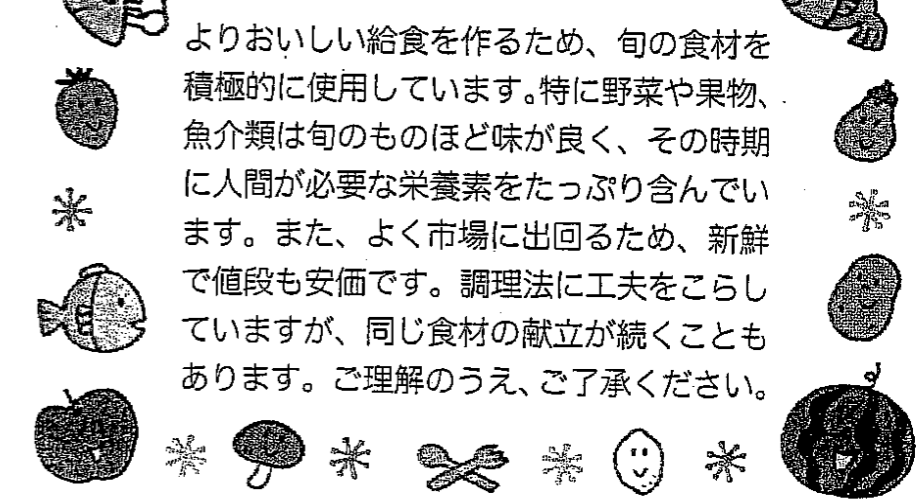 よりおいしい給食を作るため、旬の食材を
積極的に使用しています。特に野菜や果物、
魚介類は旬のものほど味が良く、その時期
に人間が必要な栄養素をたっぷり含んでい
ます。また、よく市場に出回るため、新鮮
で値段も安価です。調理法に工夫をこらし
ていますが、同じ食材の献立が続くことも
あります。ご理解のうえ、ご了承ください。